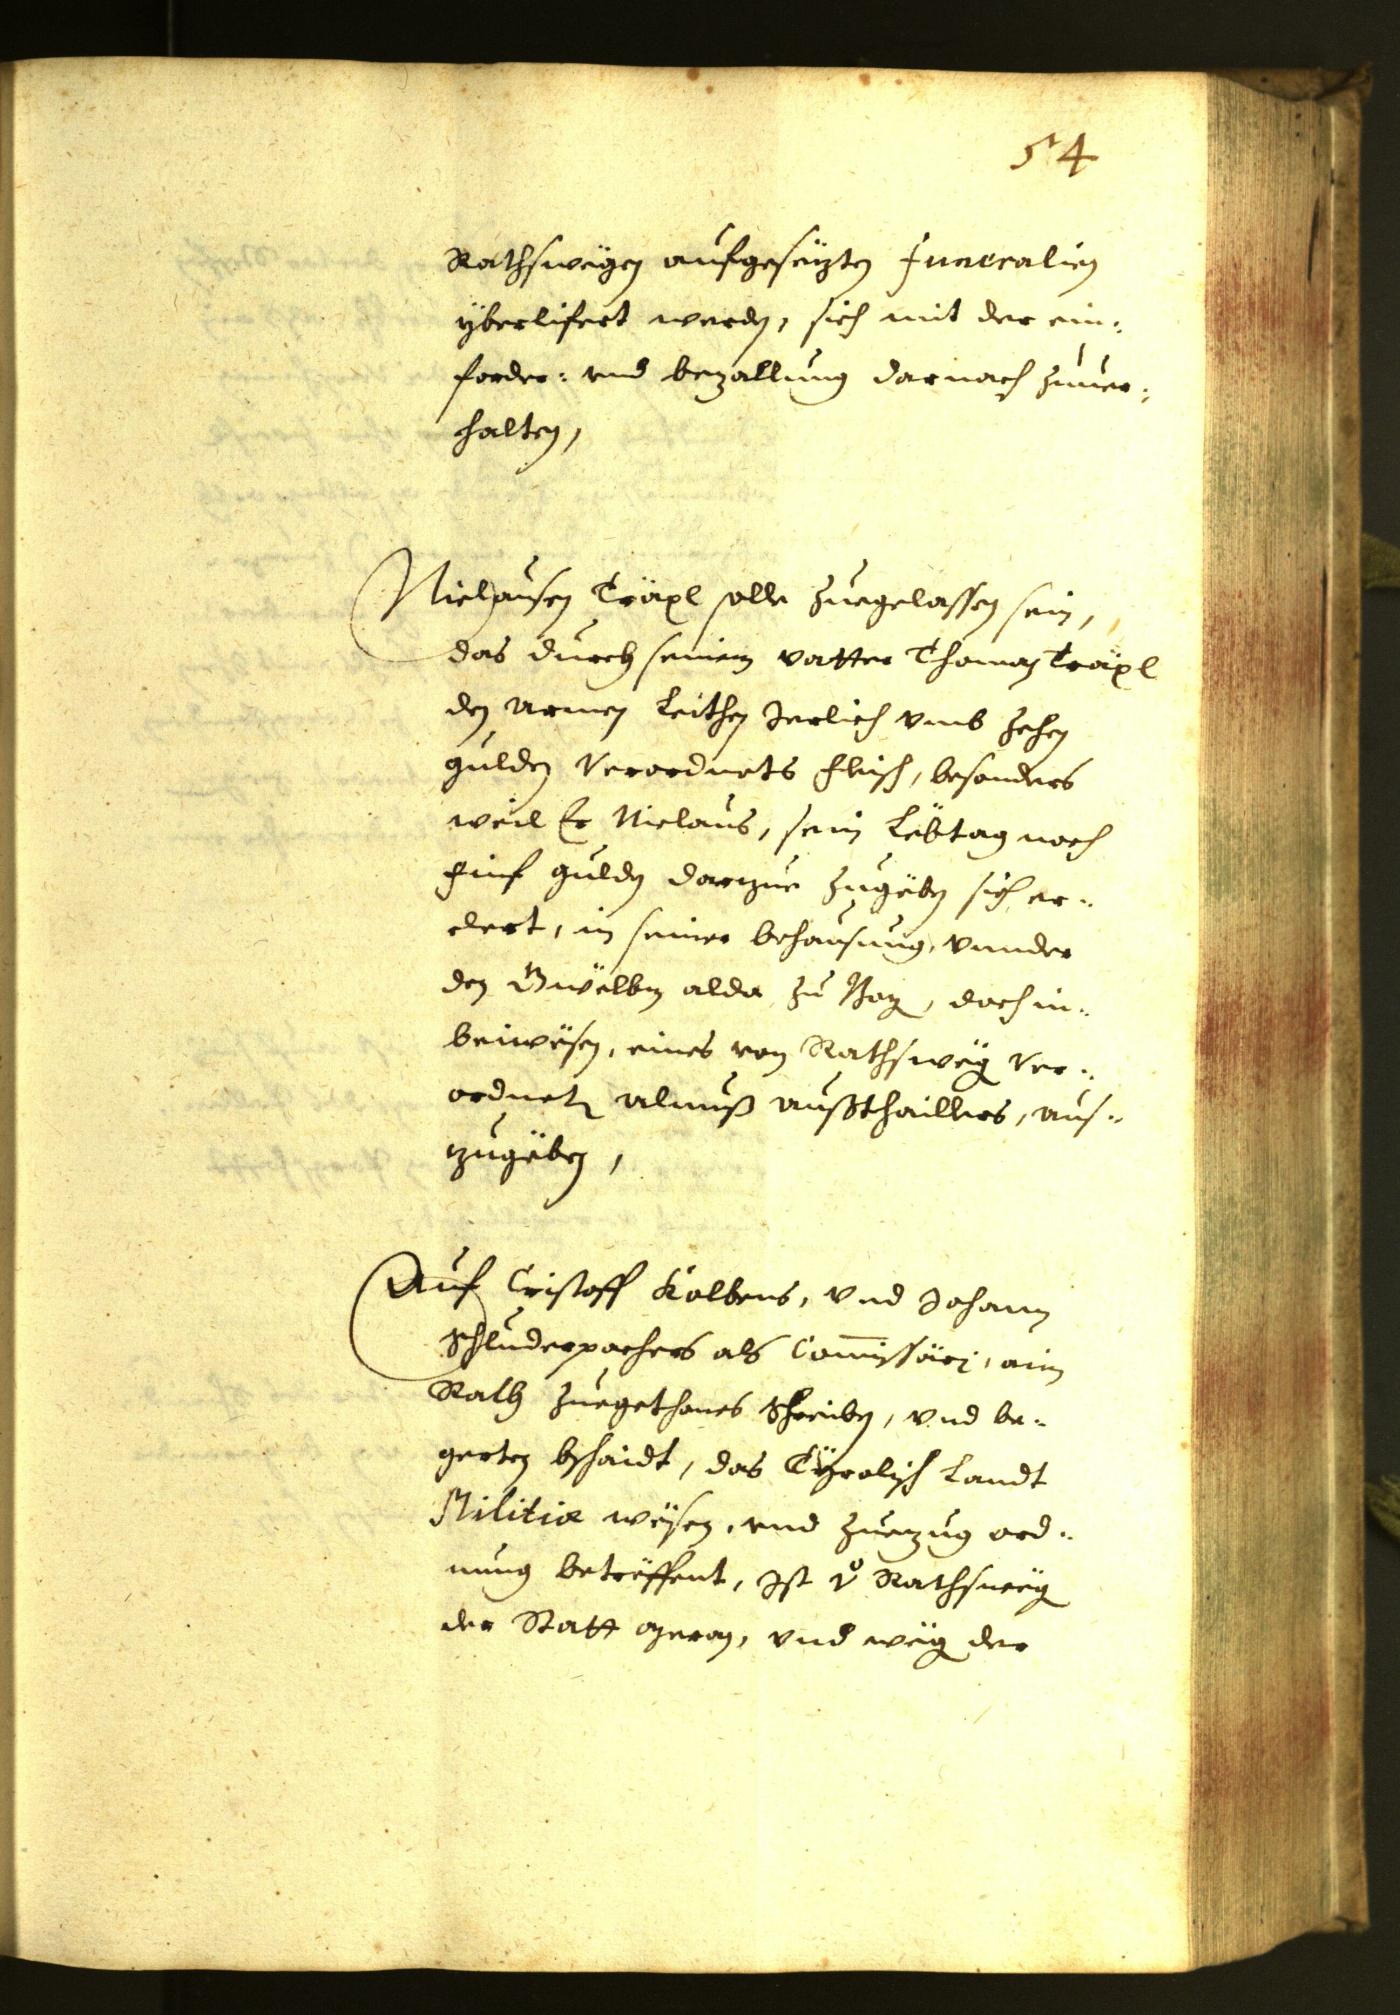 54
Rathswegen aufgesëtzten Funeralien
yberlifert werden, sich mit der ein-
forder- vnd bezallung darnach zuuer-
halten,
Niclausen Träxl solle zuegelassen sein,
das durch seinen vatter Thoman Träxl
den armen Leithen Jerlich vmb zehen
gulden verordnets fleisch, besonders
weil Er Niclaus, sein Lëbtag noch
finf gulden darzue zugëben sich er-
clert, in seiner behausung, vnnder
den Gwëlben alda zu Bozen, doch in
beiwësen, eines von Rathswëgen ver-
ordneten almuß außthaillers, aus-
zugëben,
Auf Cristoff Kolbens, vnd Johann
Schluderpachers als Commissäri, aim
Rath zuegethones schreiben, vnd be-
gerten bschaidt, das Tÿrolisch Landt
Militiæ wësen, vnd zuezug ord-
nung betrëffent, Ist von Rathswëgen
der Statt Meran, vnd wëgen der